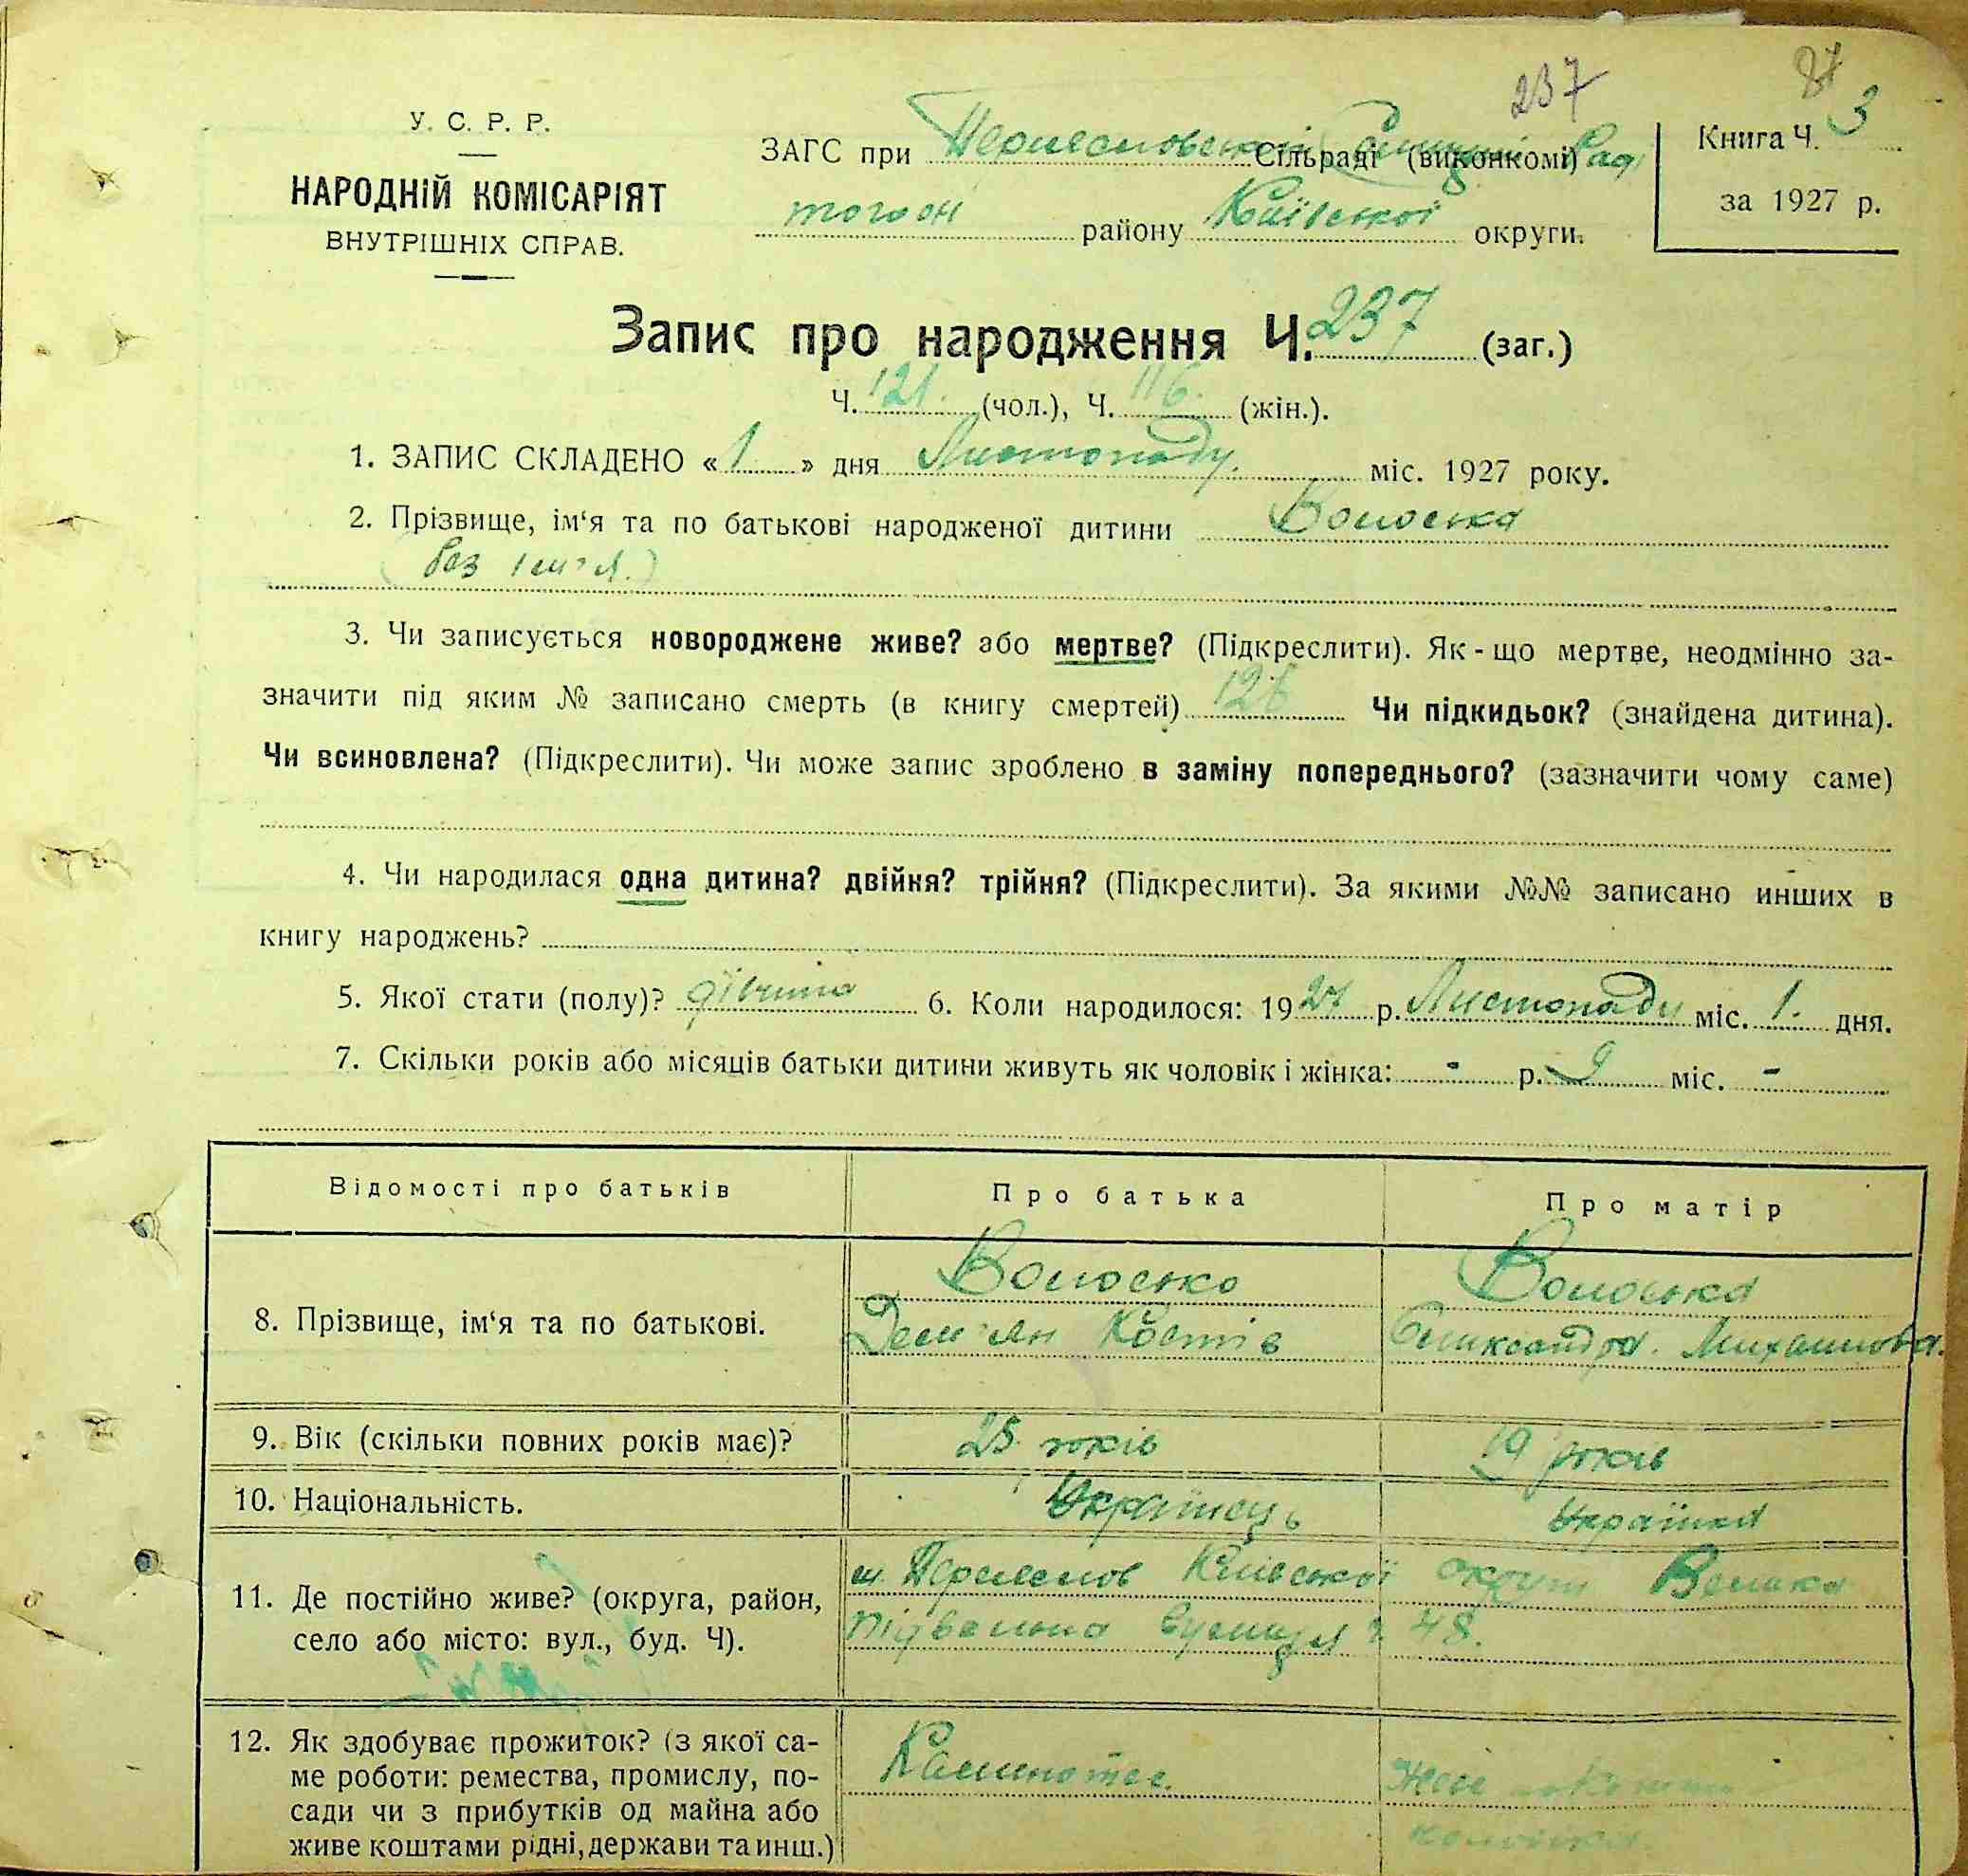 237
87
У. С. Р. Р.
НАРОДНІЙ КОМІСАРІЯТ
ВНУТРІШНІХ СПРАВ.
ЗАГС при Сільраді (виконкомі)
району Київської округи.
Книга Ч. 3
за 1927 р.
Запис про народження Ч. 237 (заг.)
Ч. 121. (чол.), Ч. 116. (жін.).
1. ЗАПИС СКЛАДЕНО « 1 » дня Листопаду. міс. 1927 року.
2. Прізвище, ім‘я та по батькові народженої дитини Волоська
(без ім'я.)
3. Чи записується новороджене живе? або мертве? (Підкреслити). Як - що мертве, неодмінно за-
значити під яким № записано смерть (в книгу смертей) 126 Чи підкидьок? (знайдена дитина).
Чи всиновлена? (Підкреслити). Чи може запис зроблено в заміну попереднього? (зазначити чому саме)
4. Чи народилася одна дитина? двійня? трійня? (Підкреслити). За якими №№ записано инших в
книгу народжень?
5. Якої стати (полу)? дівчина 6. Коли народилося: 1927 р. Листопаду міс. 1. дня.
7. Скільки років або місяців батьки дитини живуть як чоловік і жінка: - р. 9 міс. -
Відомості про батьків Про батька Про матір
8. Прізвище, ім‘я та по батькові.
Волосько Волоська
Дем'ян Костів Олександра. Михайлова.
9. Вік (скільки повних років має)? 25 років 19 років
10. Національність. Українець Українка
11. Де постійно живе? (округа, район,
село або місто: вул., буд. Ч).
м. Київської округи Велика
Підвальна вулиця 48.
12. Як здобуває прожиток? (з якої са-
ме роботи: ремества, промислу, по-
сади чи з прибутків од майна або
живе коштами рідні, держави та инш.)
Каменотес.